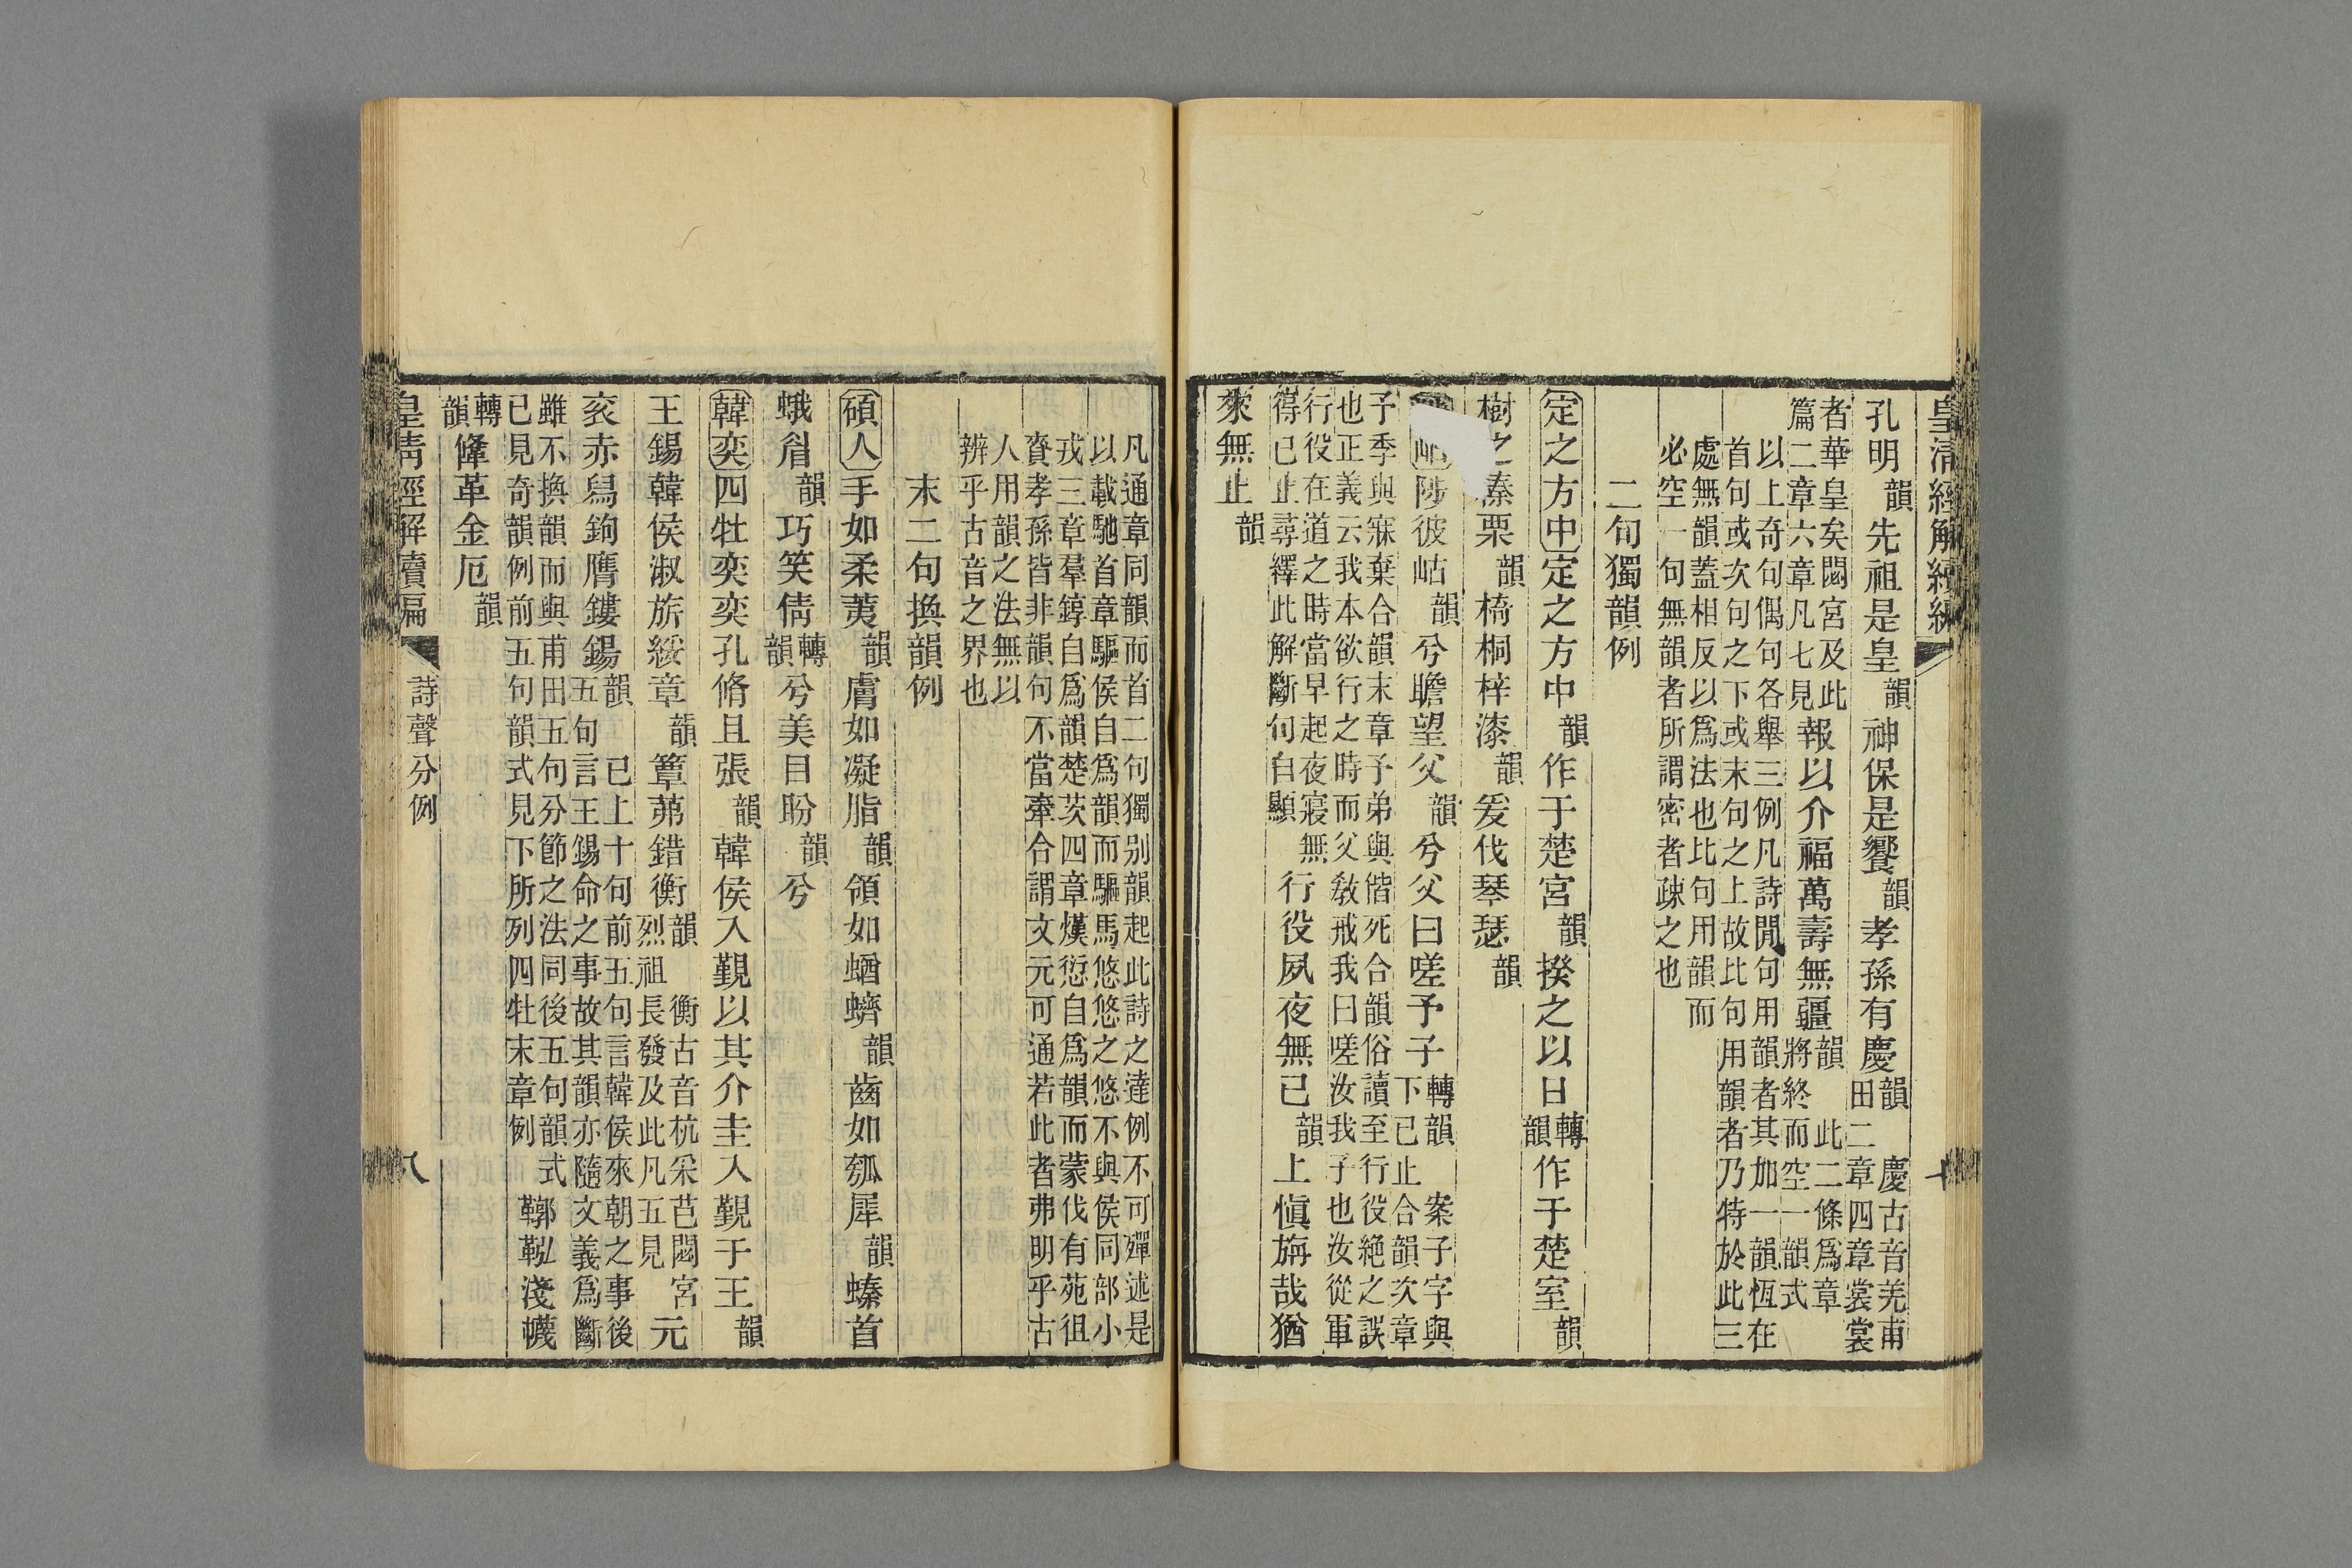 皇清經解續編
孔明韻先祖是皇韻神保是饗韻孝孫有慶韻慶古音羌甫田二章四章裳裳
者華皇矣閟宮及此篇二章六章凡七見報以介福萬壽無疆韻此二條爲章將終而空一韻式
以上奇句偶句各舉三例凡詩閒句用韻者其加一韻恆在
首句或次句之下或末句之上故比句用韻者乃特於此三
處無韻蓋相反以爲法也比句用韻而
必空一句無韻者所謂密者疎之也
二句獨韻例
定之方中定之方中韻作于楚宮韻揆之以日轉韻作于楚室韻
樹之榛栗韻椅桐梓漆韻爰伐琴瑟韻
岵陟彼岵韻兮瞻望父韻兮父曰嗟予子轉韻下已止案子字與合韻次章
子季與寐棄合韻末章子弟與偕死合韻俗讀至行役絶之誤
也正義云我本欲行之時而父敎戒我曰嗟汝我子也汝從軍
行役在道之時當早起夜寢無
得已止尋繹此解斷句自顯行役夙夜無已韻上愼旃哉猶
來無止韻
凡通章同韻而首二句獨别韻起此詩之達例不可殫述是
以載馳首章驅侯自爲韻而驅馬悠悠之悠不與侯同部小
戎三章羣錞自爲韻楚茨四章熯愆自爲韻而蒙伐有苑徂
賚孝孫皆非韻句不當牽合謂文元可通若此者弗明乎古
人用韻之法無以
辨乎古音之界也
末二句換韻例
碩人手如柔荑韻膚如凝脂韻領如蝤蠐韻齒如瓠犀韻螓首
蛾眉韻巧笑倩轉韻兮美目盼韻兮
韓奕四牡奕奕孔脩且張韻韓侯入覲以其介圭入覲于王韻
王錫韓侯淑旂綏章韻簟茀錯衡韻衡古音杭采芑閟宮烈祖長發及此凡五見元
袞赤舄鉤膺鏤鍚韻已上十句前五句言韓侯來朝之事後五句言王錫命之事故其韻亦隨文義爲斷
雖不換韻而與甫田五句分節之法同後五句韻式
已見奇韻例前五句韻式見下所列四牡末章例鞹鞃淺幭
轉韻鞗革金厄韻
皇清經解續編
詩聲分例
八